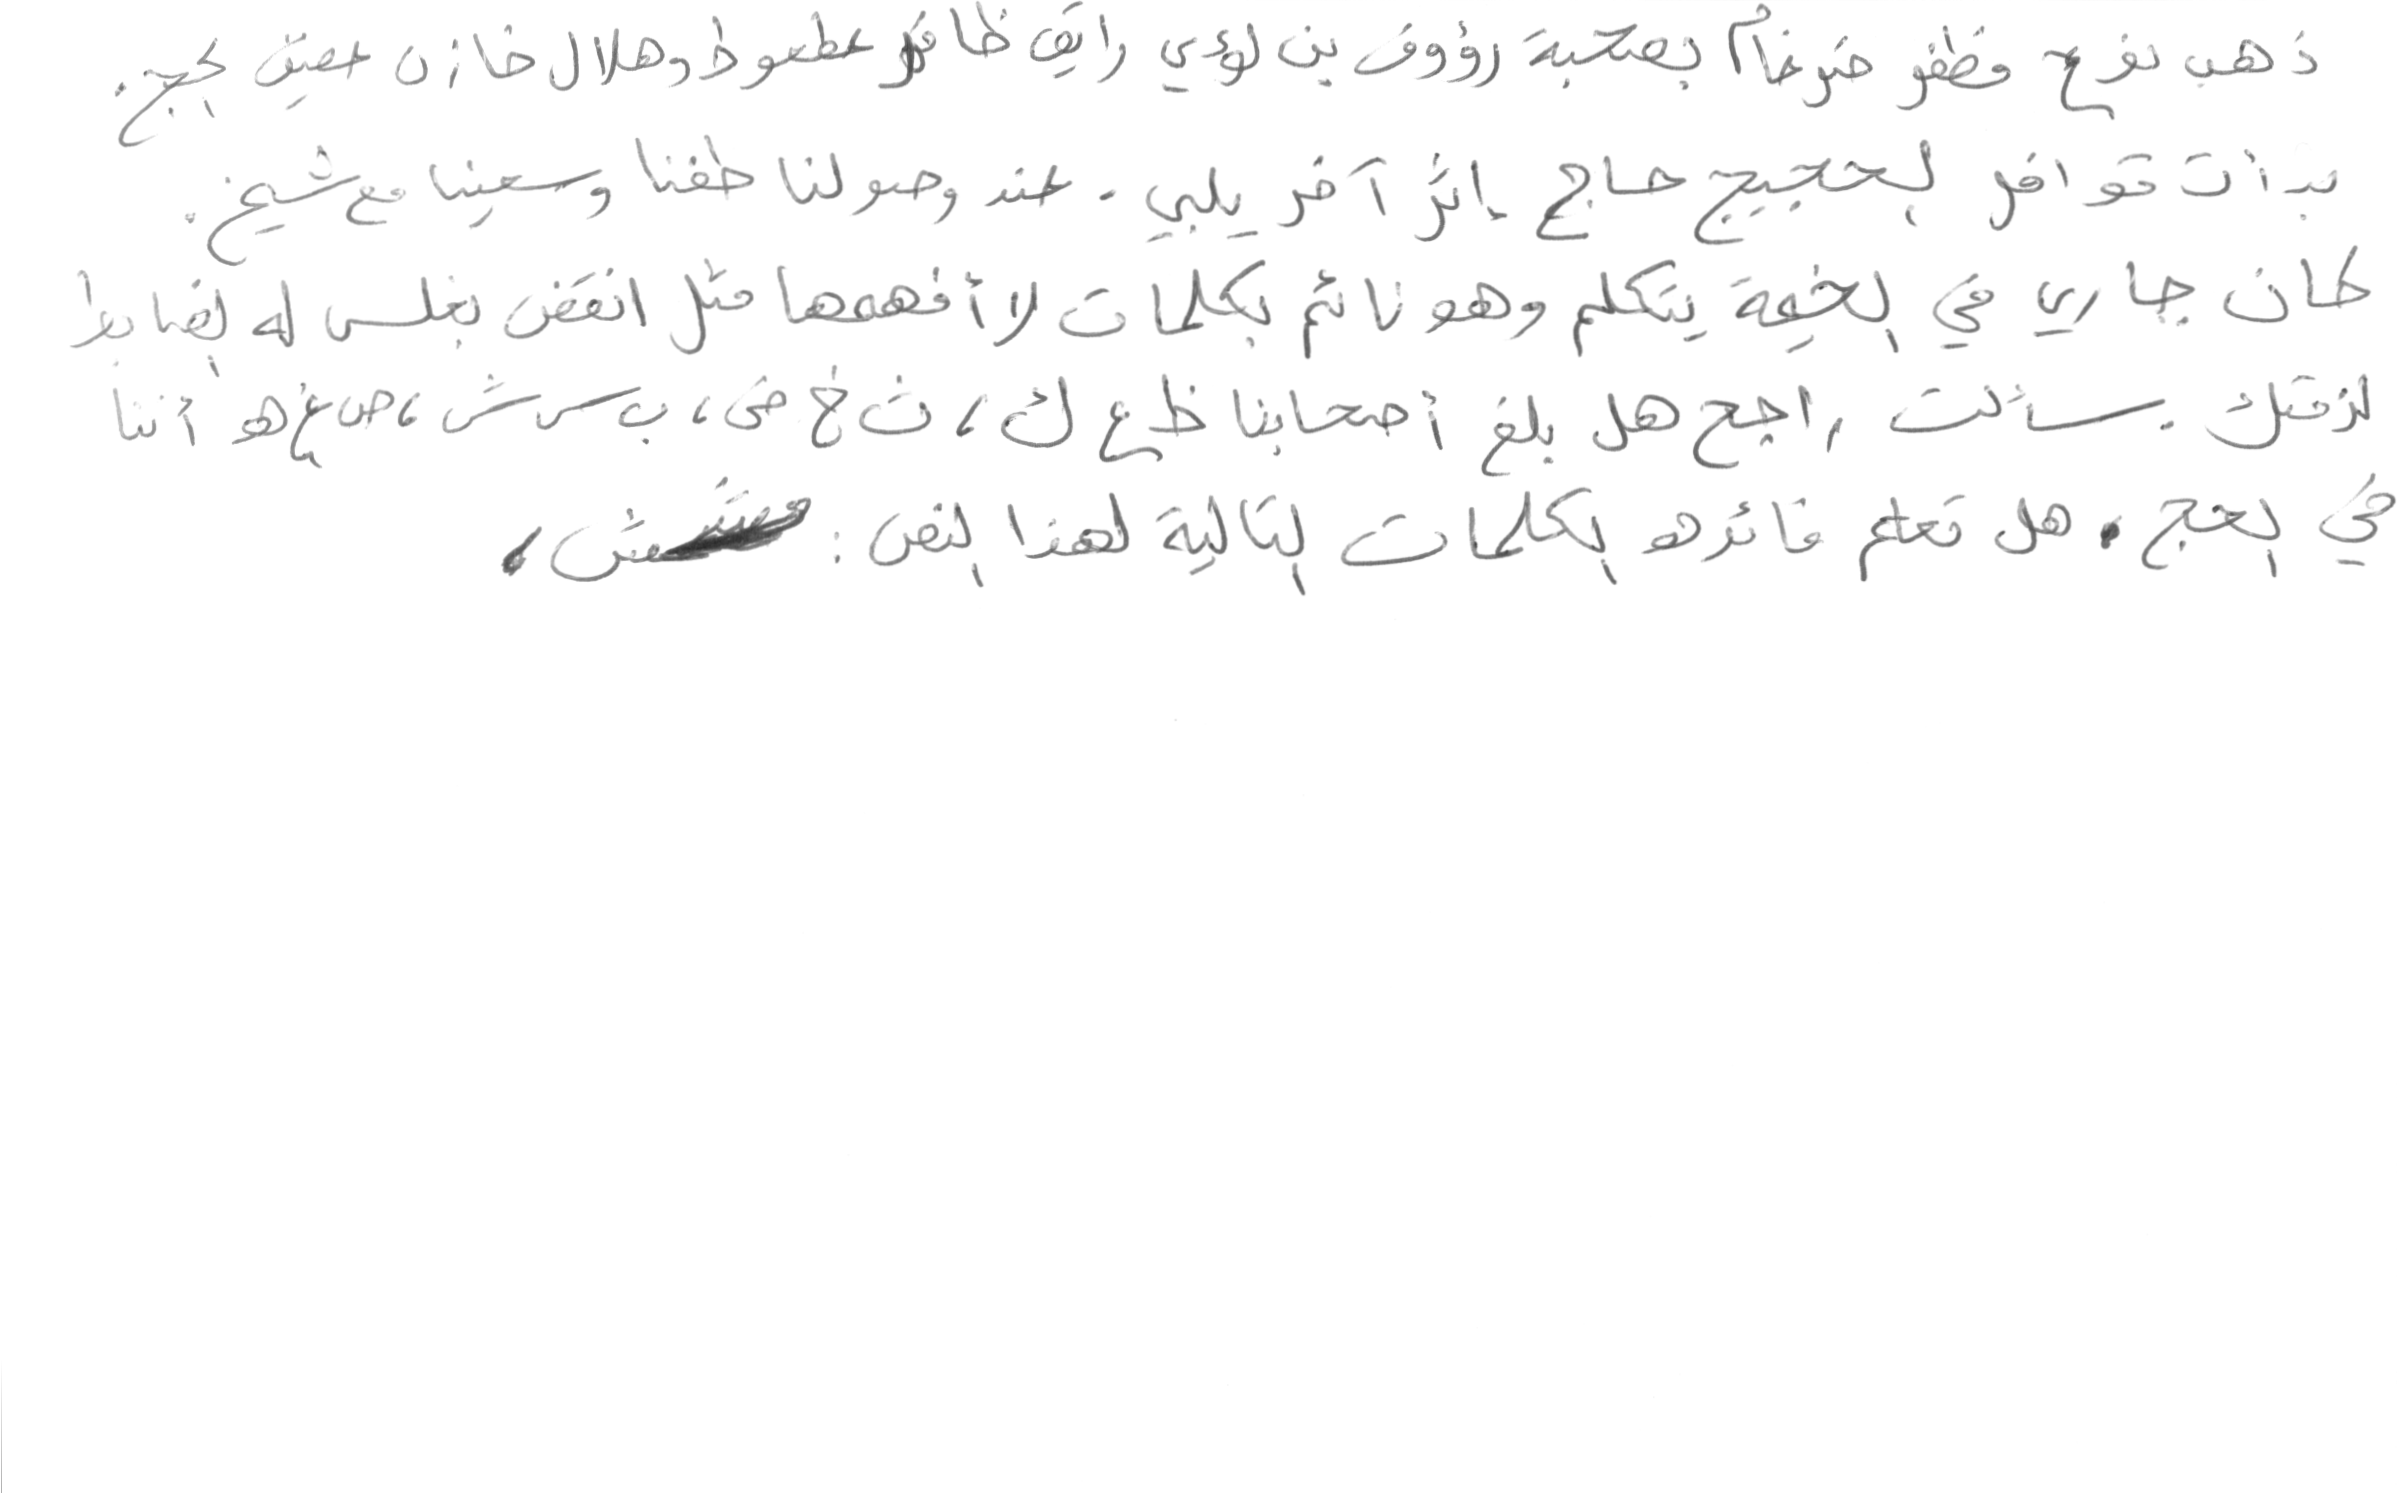 ذهب نوح مظفر ضرغام بصحبة رؤوف بن لؤي رايق ظافر عطعوط وهلال خازن لحج.
بدأت قوافل الحجيج حاج إثر آخر يلبي. عند وصولنا طفنا وسعينا مع شيخ.
كان جاري في الخيمة يتكلم وهو نائم بكلمات لا أفهمها مثل انقض بغلس له الضابط
سألت راجح هل بلغ أصحابنا ظ ع ك، ث خ ض، ب س ش، ص غ هـ أننا
في الحج. هل تعلم فائدة الكلمات التالية لهذا النص: